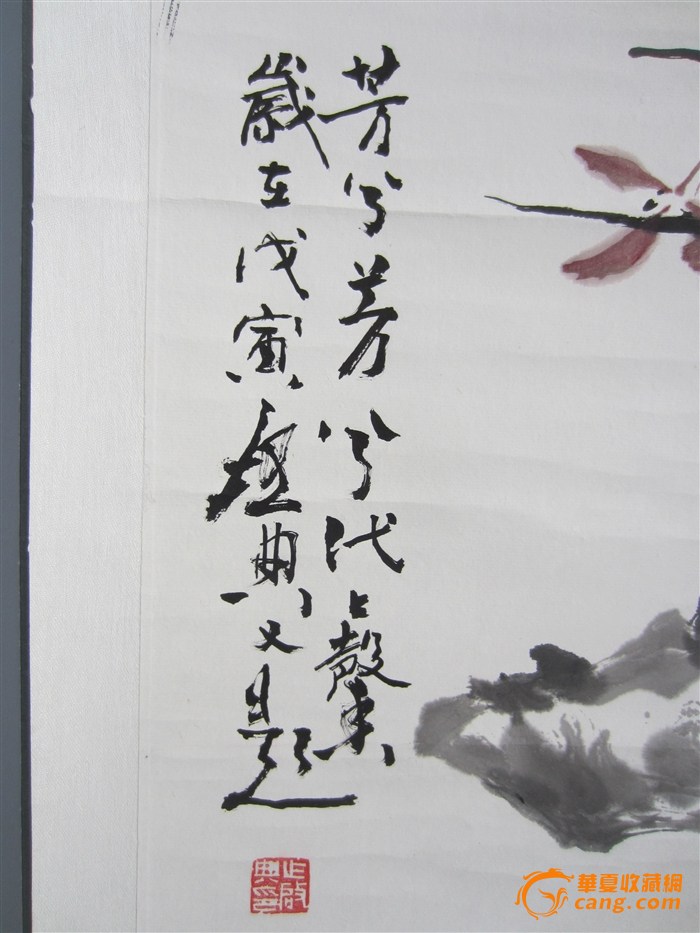 芳兮芳兮代〻馨
歲在戊寅典又題
華夏收藏網
cang.com